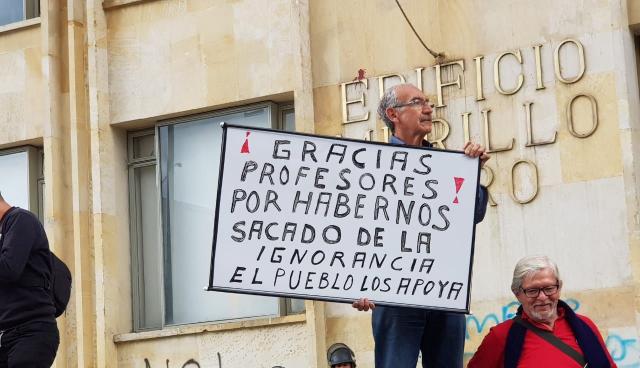 EDIFICIO
MURILLO
TORO
¡GRACIAS
PROFESORES
POR HABERNOS!
SACADO DE LA
IGNORANCIA
EL PUEBLO LOS APOYA